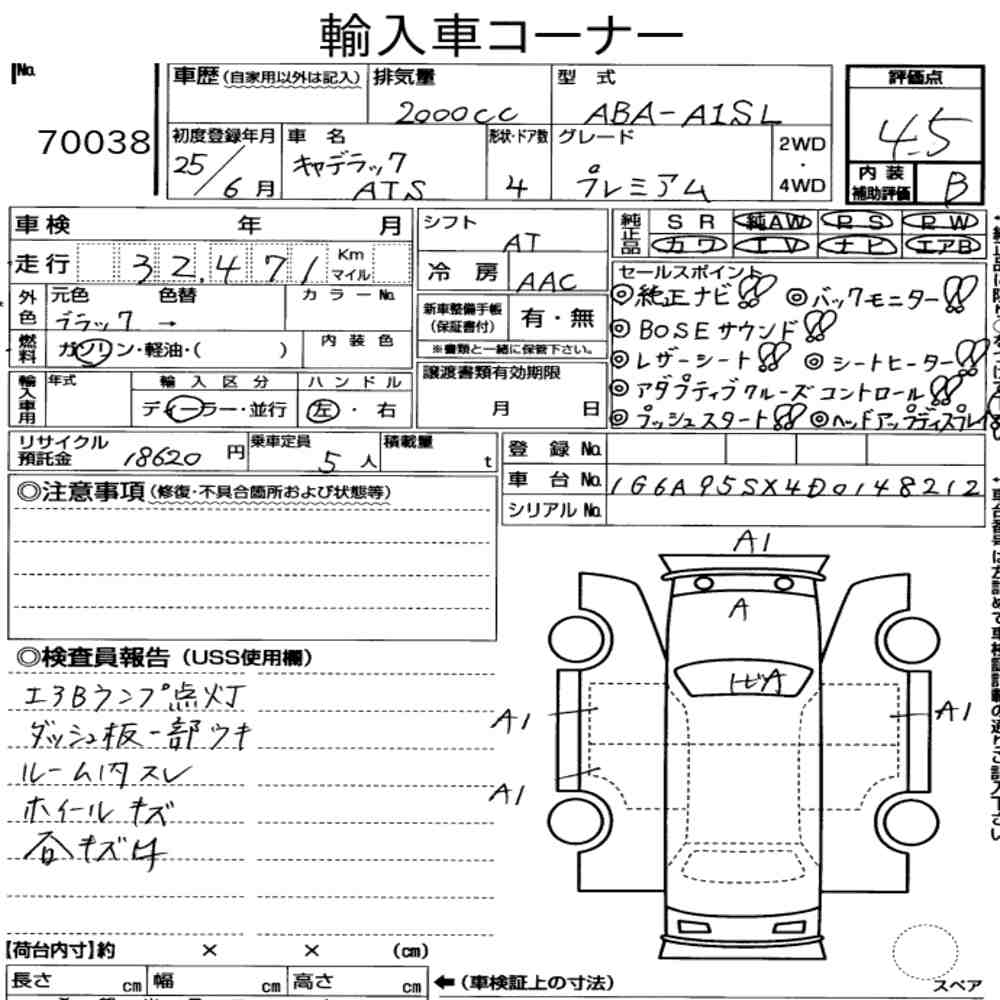 輸入車コーナー
No.
70038
車歴 (自家用以外は記入) 排気量 2000cc 型式 ABA-A1SL
初度登録年月 25/6月 車名 キャデラック ATS 形状・ドア数 4 グレード プレミアム 2WD・4WD
評価点 4.5
内装補助評価 B
車検 年 月
走行 32,471 Km マイル
外色 元色 ブラック → 色替 カラーNo.
燃料 ガソリン・軽油・( ) 内装色
輸入車用 年式 輸入区分 ディーラー・並行 ハンドル 左・右
シフト AT
冷房 AAC
新車整備手帳(保証書付) 有・無
※書類と一緒に保管下さい。
譲渡書類有効期限
月 日
純正品 SR 純AW PS PW
カワ TV ナビ エアB
セールスポイント
◎純正ナビ!! ◎バックモニター!!
◎BOSEサウンド!!
◎レザーシート!! ◎シートヒーター!!
◎アダプティブクルーズコントロール!!
◎プッシュスタート!! ◎ヘッドアップディスプレイ
リサイクル預託金 18620円 乗車定員 5人 積載量 t
登録No.
車台No. 1G6A95SX4D0148212
シリアルNo.
◎注意事項 (修復・不具合箇所および状態等)
◎検査員報告 (USS使用欄)
エアBランプ点灯
ダッシュ板一部ウキ
ルーム内スレ
ホイールキズ
キズ
A1
A
A1
A1
A1
【荷台内寸】約 × × (cm)
長さ cm 幅 cm 高さ cm ←(車検証上の寸法)
スペア